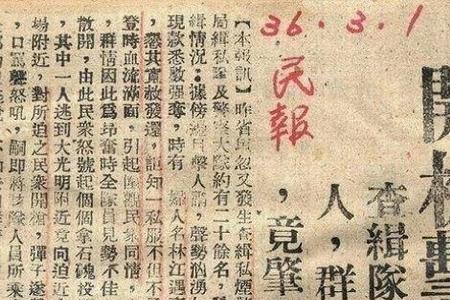 36.3.1
民報
開槍擊
查緝隊
人,群
,竟肇
【本報訊】昨省垣忽又發生查緝私煙
局緝私隊及警察大隊約有二十餘名,
緝情況:據傍邊目擊人謂,聲勢洶湧
現款悉數强奪,時有 婦人名林江邁
,懇其實赦發還 詎知一私服不但不
登時血流滿面,引起傍觀民衆同情,
,群情因此為昂奮時全隊員見勢不佳
散開,由此民衆怒號起個個拿石磈投
,其中一人逃到大光明附近竟向迫近
場附近,對所迫之民衆開槍,彈子遂
,口罵聲怒吼,嗣即將 隊人員所乘